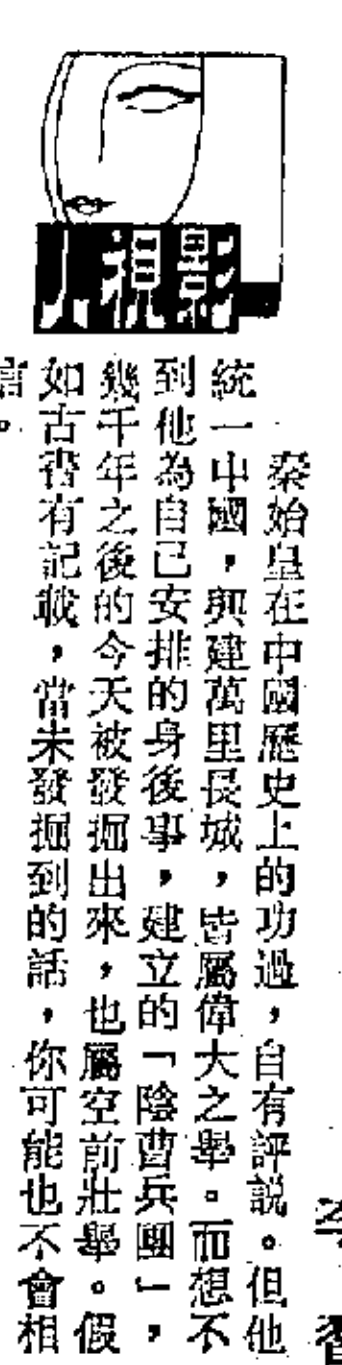 影視人
秦始皇在中國歷史上的功過，自有評說。但他
統一中國，興建萬里長城，皆屬偉大之舉。而想不
到他為自己安排的身後事，建立的「陰曹兵團」，
幾千年之後的今天被發掘出來，也屬空前壯舉。假
如古書有記載，當未發掘到的話，你可能也不會相
信。